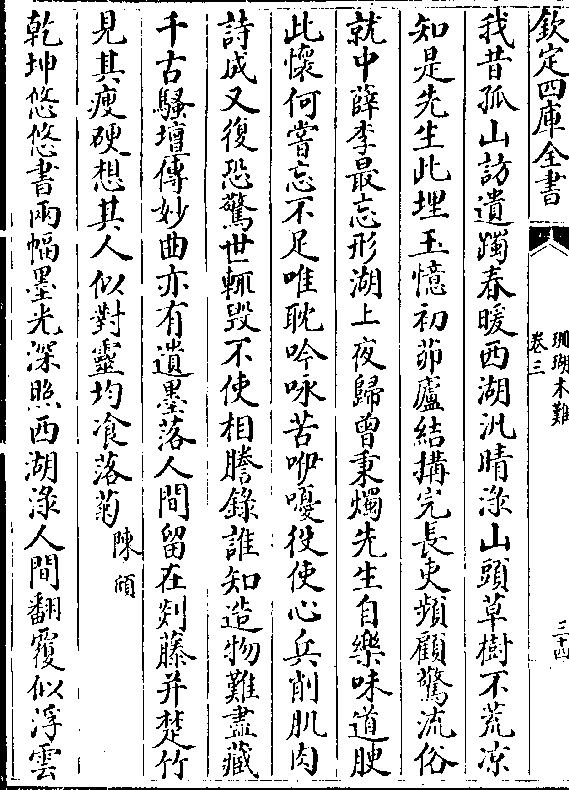 欽定四庫全書
珊瑚木難
卷三
三十四
我昔孤山訪遺躅春暖西湖汎晴渌山頭草樹不荒凉
知是先生此埋玉憶初茆廬結搆完長吏頻顧驚流俗
就中薛李最忘形湖上夜歸曾秉燭先生自樂味道腴
此懷何嘗忘不足唯耽吟咏苦咿嚘役使心兵削肌肉
詩成又復恐驚世輒毀不使相謄錄誰知造物難盡藏
千古騷壇傳妙曲亦有遺墨落人間留在剡藤并楚竹
見其瘦硬想其人似對靈均飡落菊 陳頎
乾坤悠悠書兩幅墨光深照西湖渌人間翻覆似浮雲